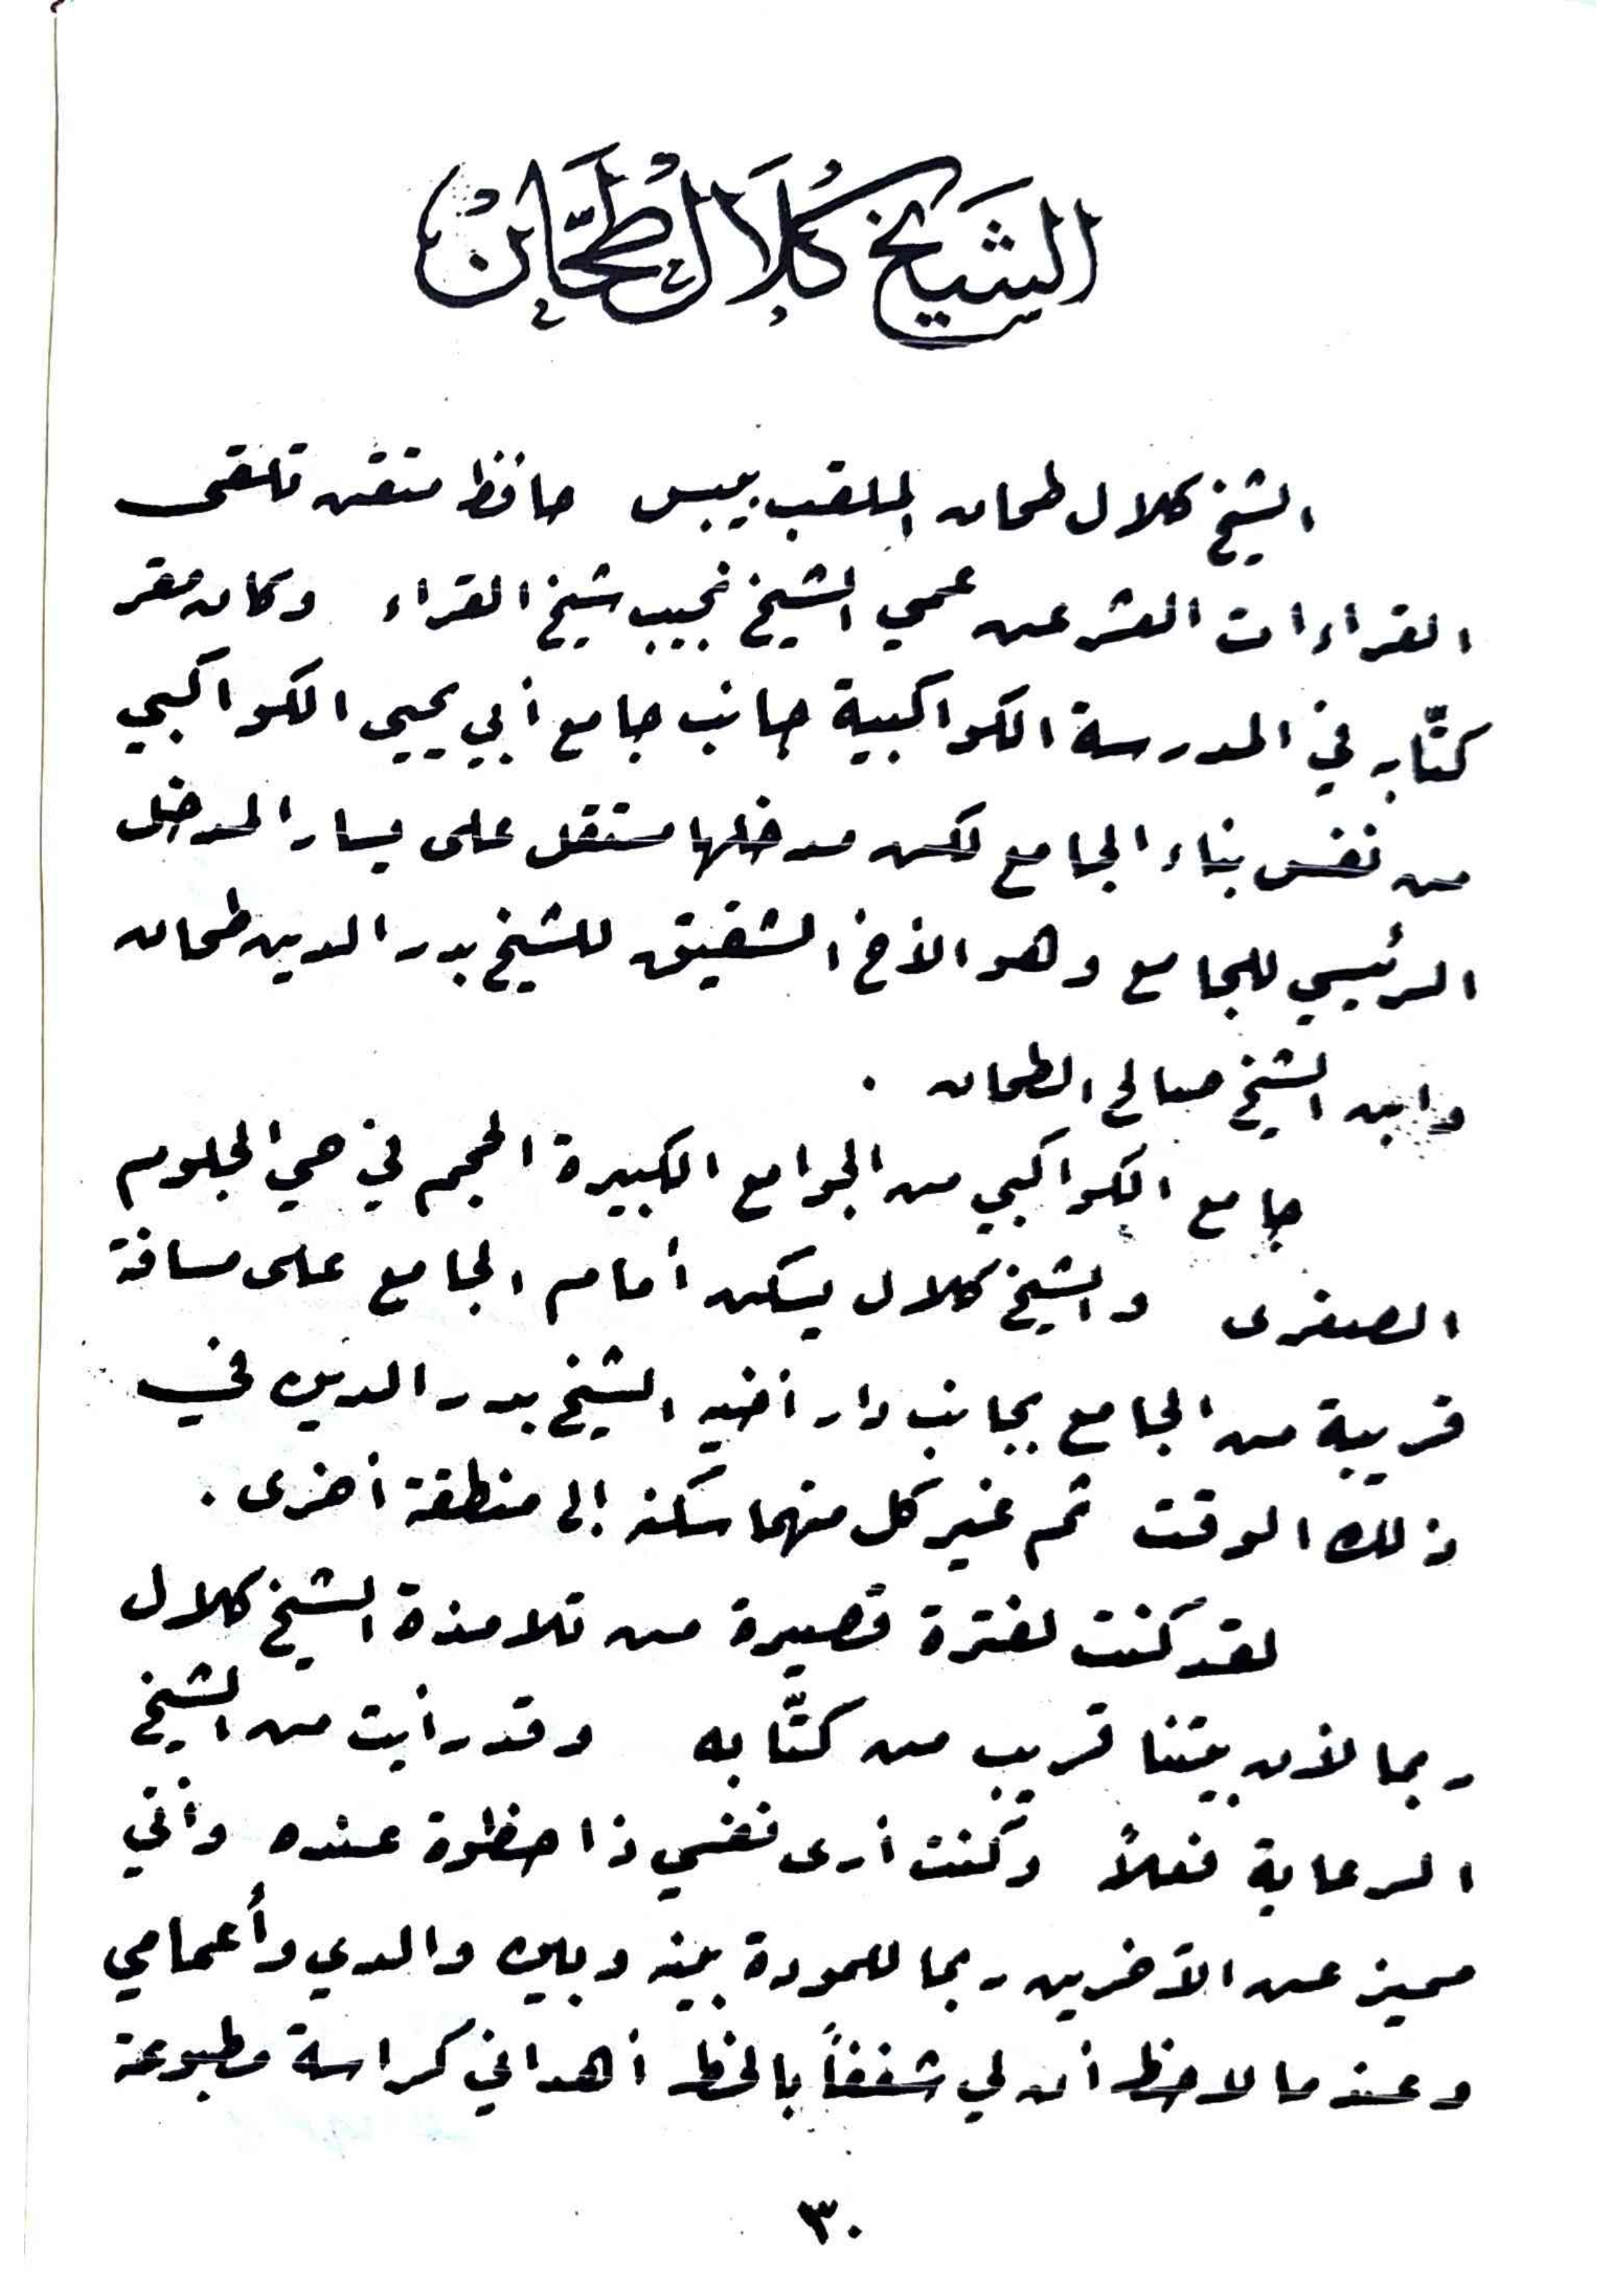 الشَيخ كُلَال طُحَّان
الشيخ كلال طحان الملقب بيبس حافظ متقن تلقى
القراءات العشر عن عمي الشيخ نجيب شيخ القراء وكان مقر
كتّابه في المدرسة الكواكبية جانب جامع أبي يحيى الكواكبي
من نفس بناء الجامع لكن مدخلها مستقل على يسار المدخل
الرئيسي للجامع وهو الأخ الشقيق للشيخ بدر الدين طحان
وابن الشيخ صالح الطحان .
جامع الكواكبي من الجوامع الكبيرة الحجم في حي الجلوم
الصغرى والشيخ كلال يسكن أمام الجامع على مسافة
قريبة من الجامع بجانب دار أخيه الشيخ بدر الدين في
ذلك الوقت ثم غير كل منهما سكنه إلى منطقة أخرى .
لقد كنت لفترة قصيرة من تلامذة الشيخ كلال
ربما لأن بيتنا قريب من كتّابه وقد رأيت من الشيخ
الرعاية فعلاً وكنت أرى نفسي ذا حظوة عنده وأني
مميز عن الآخرين ربما للمودة بينه وبين والدي وأعمامي
وعندما لاحظ أن لي شغفاً بالخط أهداني كراسة مطبوعة
٣٠